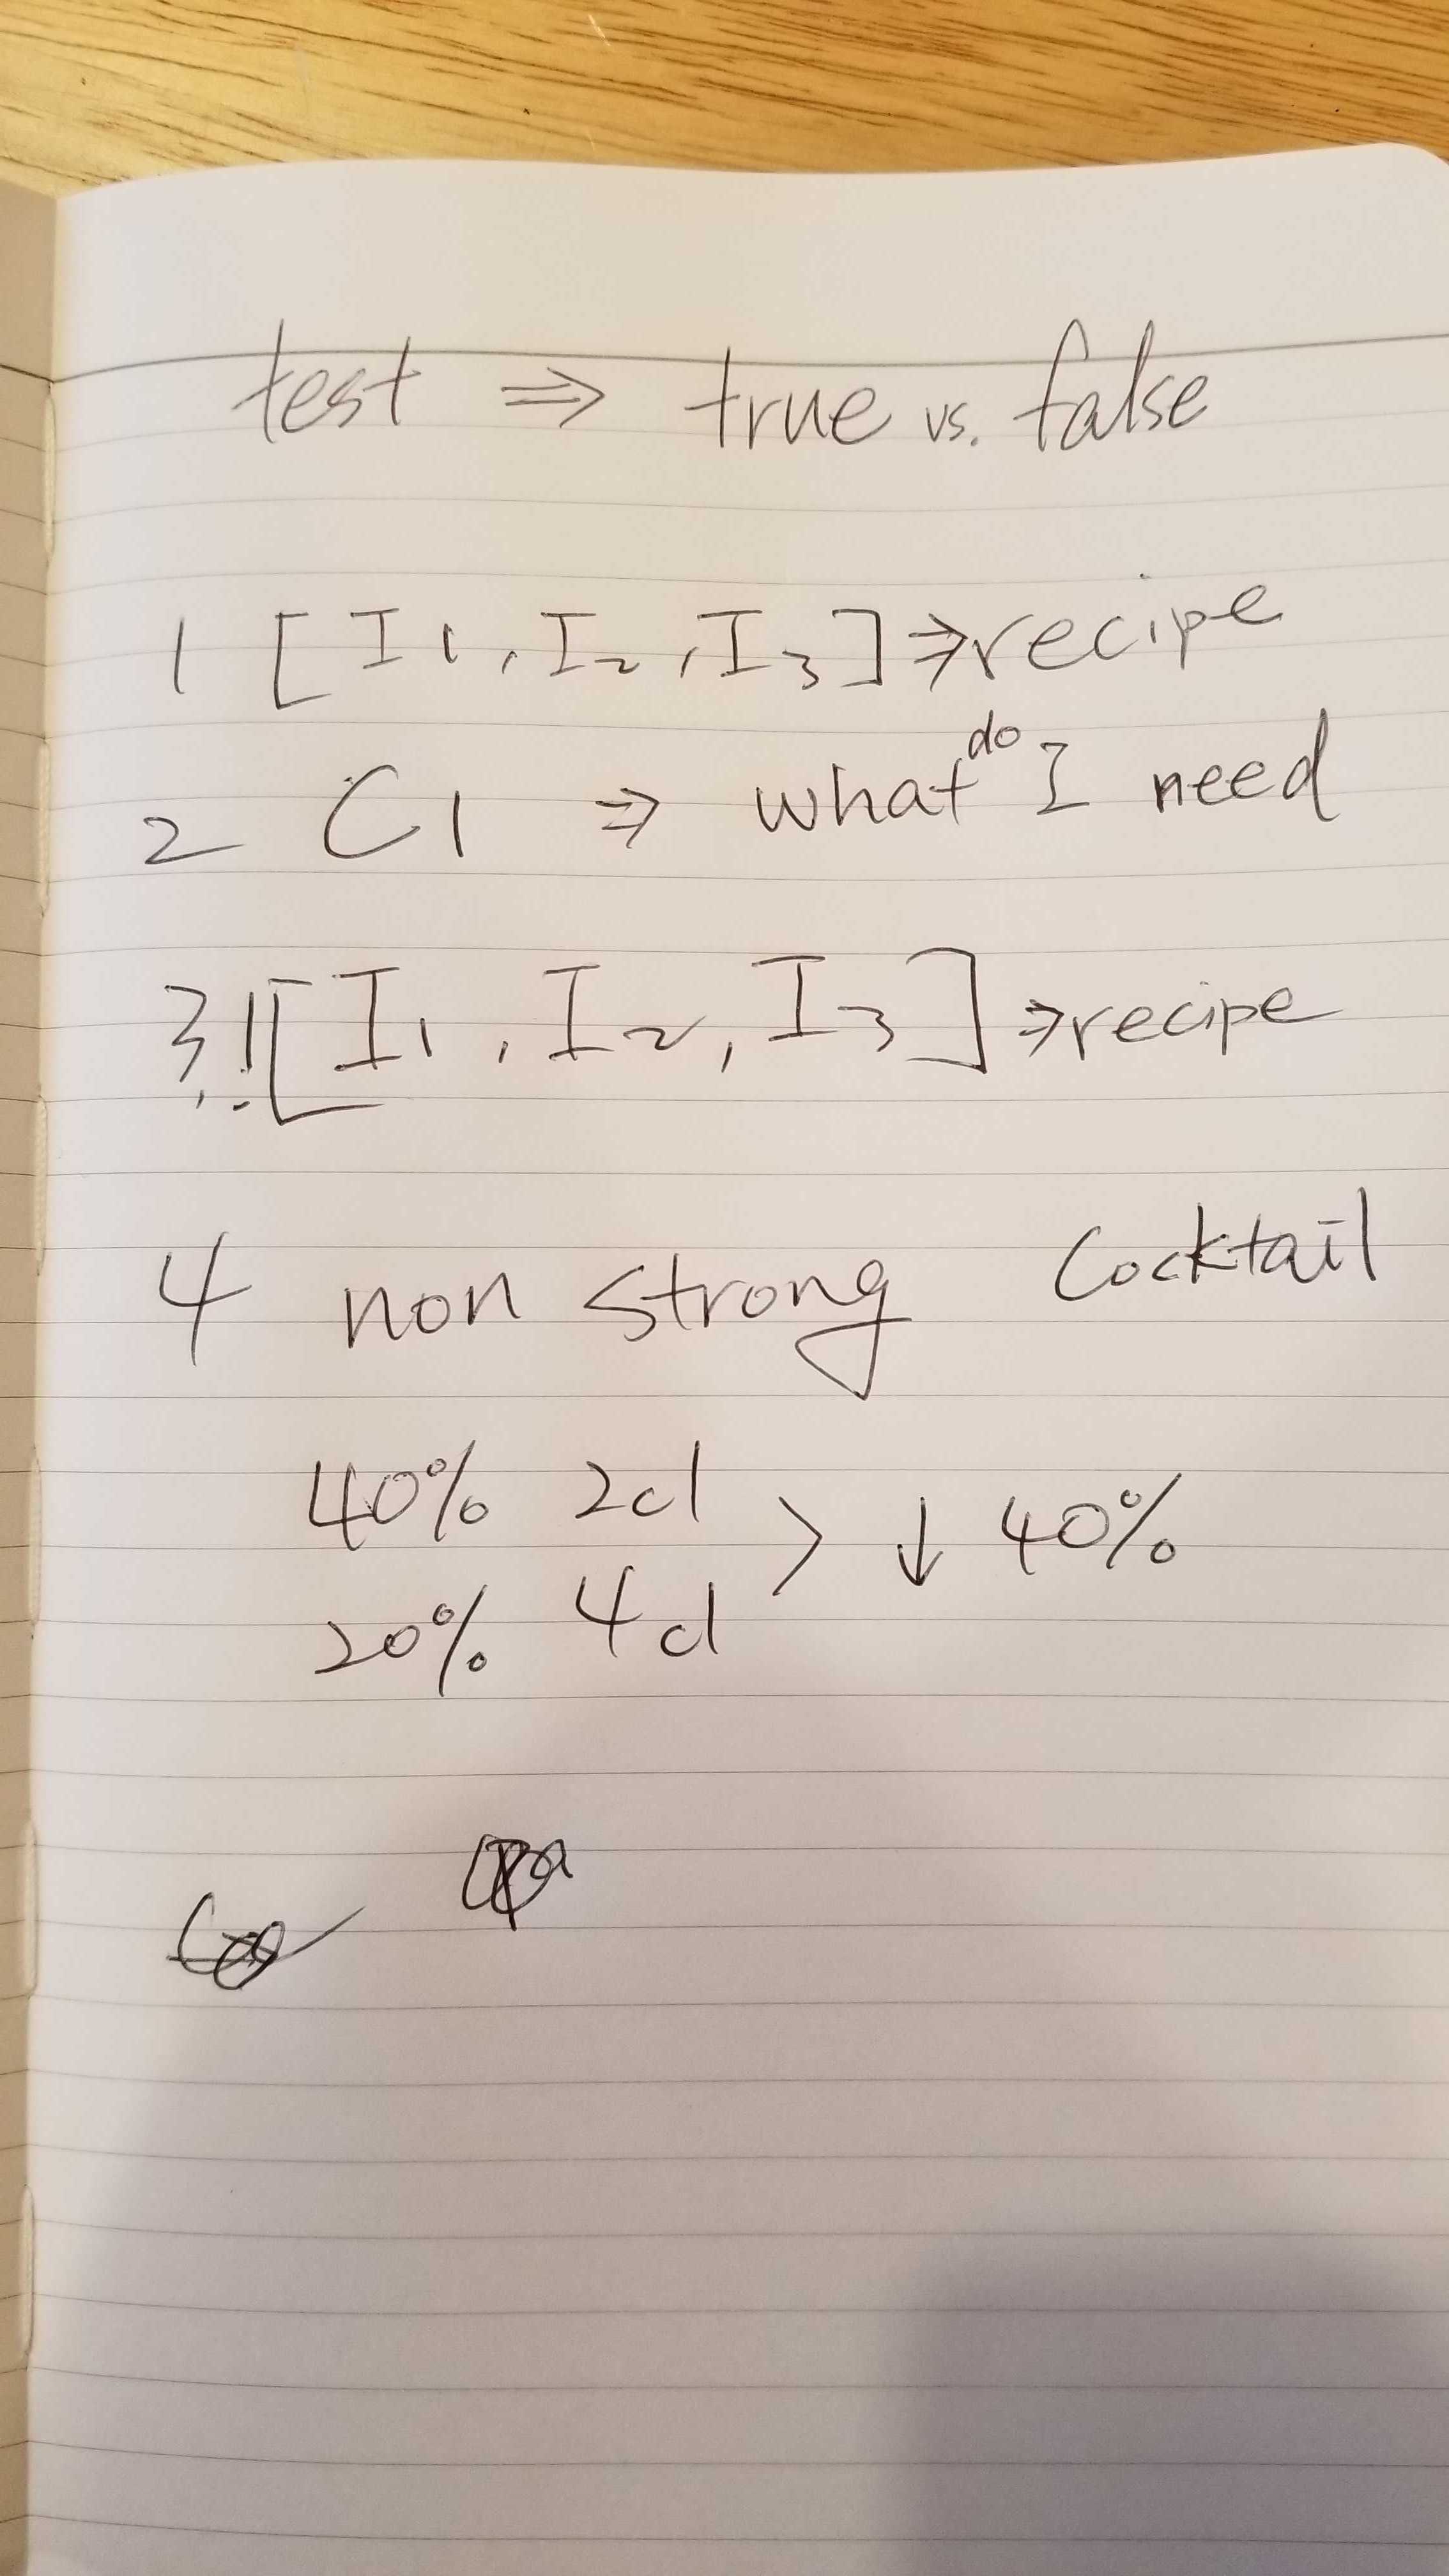 test ⇒ true vs. false
1 [I1, I2, I3] ⇒ recipe
2 C1 ⇒ what do I need
3. ![I1, I2, I3] ⇒ recipe
4 non strong cocktail
40% 2cl > ↓ 40%
20% 4cl